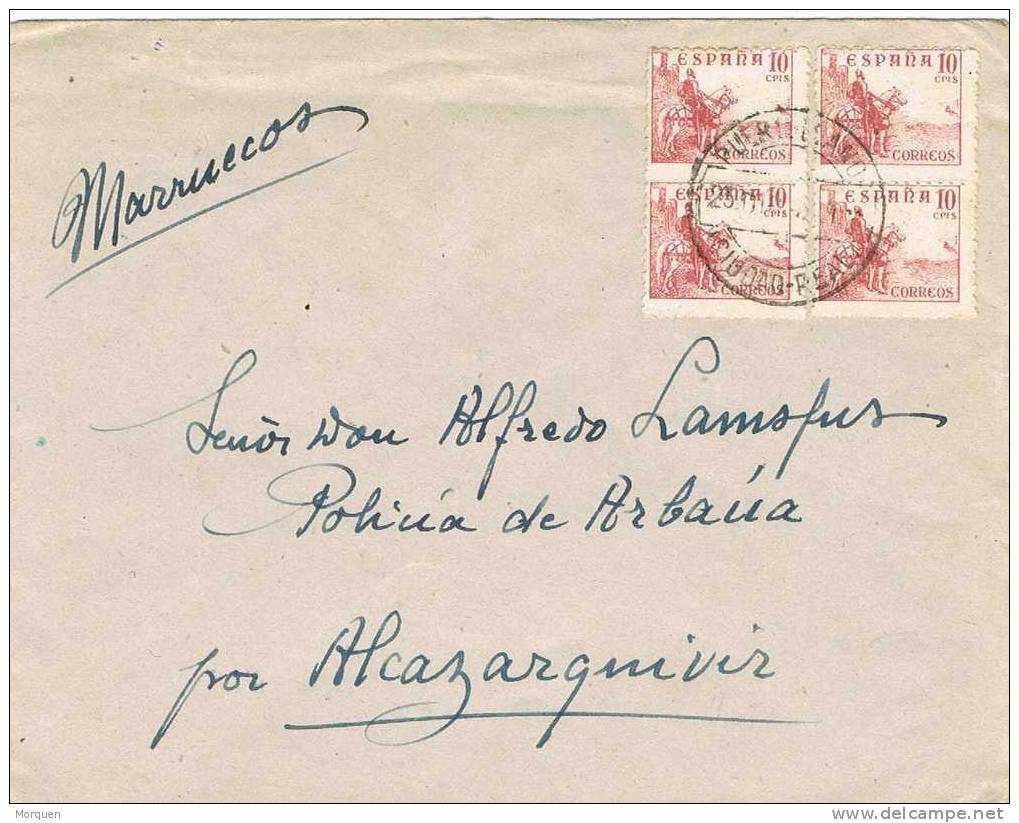 Marruecos
ESPAÑA 10
CTS
CORREOS
ESPAÑA 10
CTS
CORREOS
ESPAÑA 10
CTS
CORREOS
ESPAÑA 10
CTS
CORREOS
PUERTOLLANO
CIUDAD-REAL
Señor Don Alfredo Lamsfus
Policía de Arbaúa
por Alcazarquivir
Morquen
delcampe.net